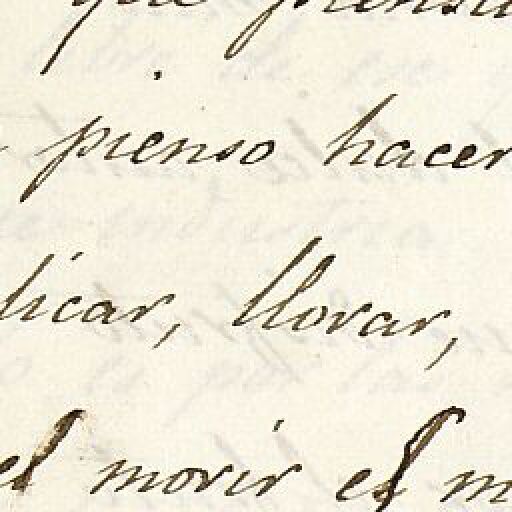 que piensa
pienso hacer
licar, llorar,
el morir el m